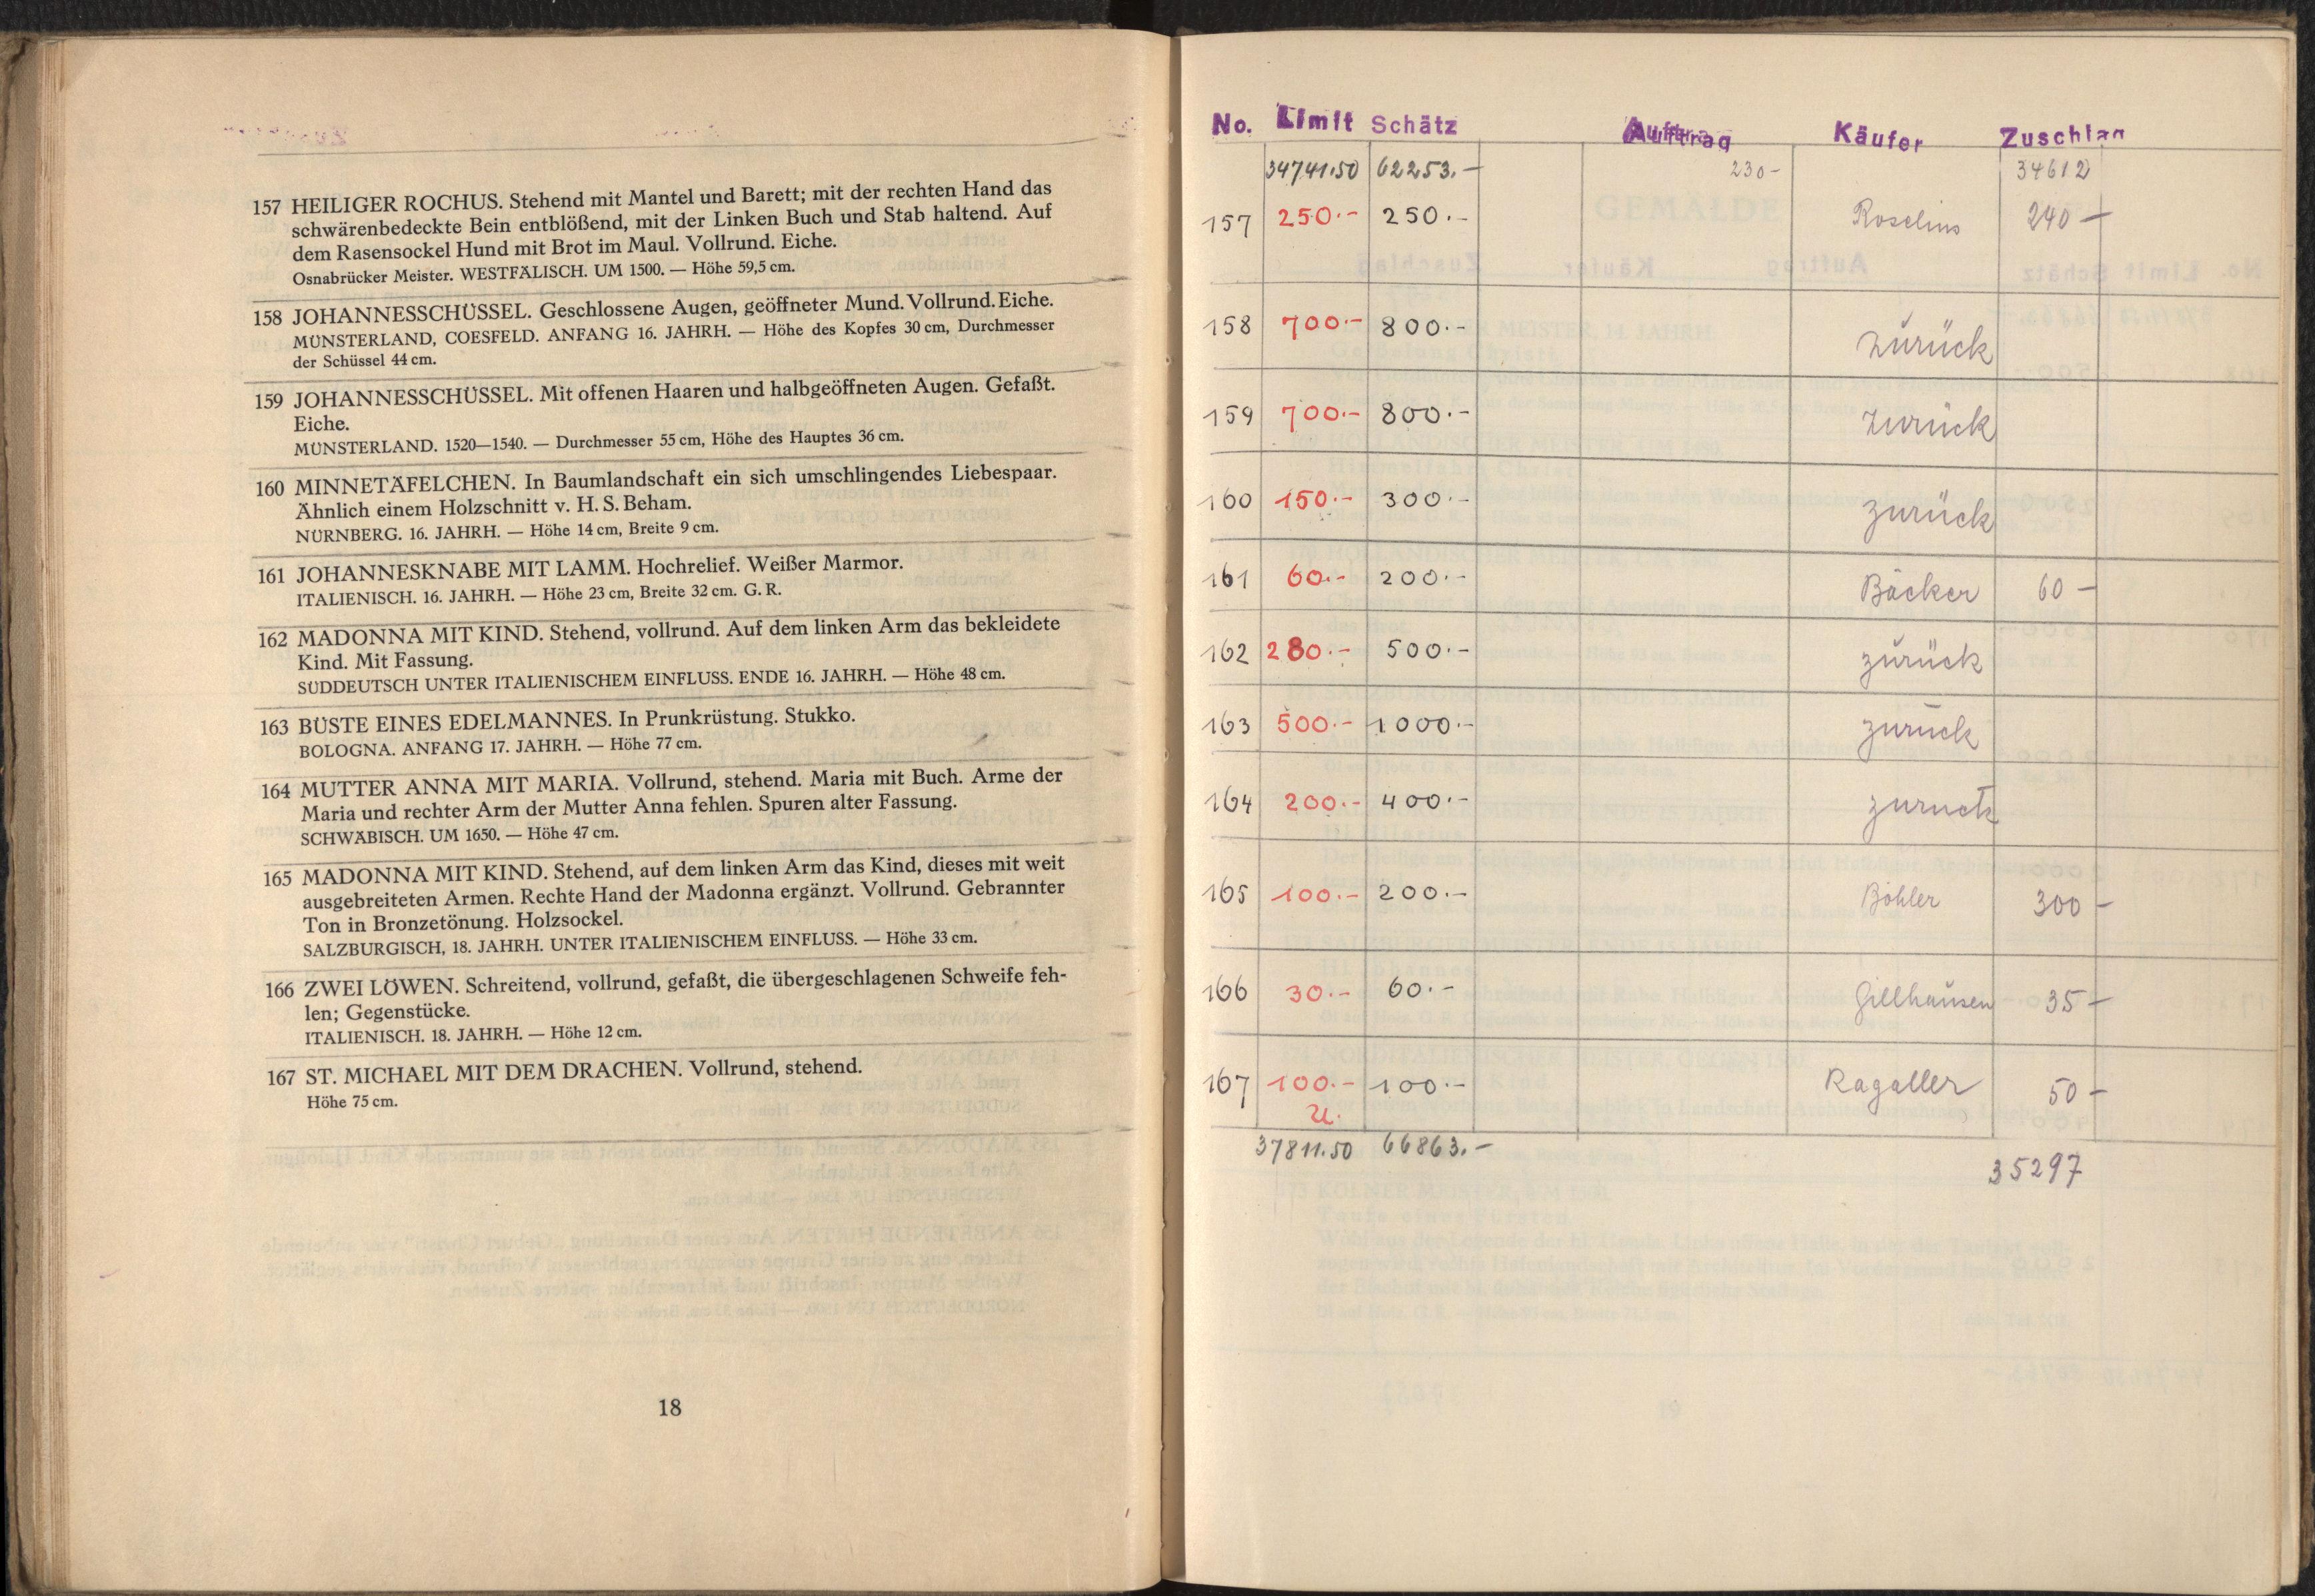 157 HEILIGER ROCHUS. Stehend mit Mantel und Barett; mit der rechten Hand das
schwärenbedeckte Bein entblößend, mit der Linken Buch und Stab haltend. Auf
dem Rasensockel Hund mit Brot im Maul. Vollrund. Eiche.
Osnabrücker Meister. WESTFÄLISCH. UM 1500. — Höhe 59,5 cm.
158 JOHANNESSCHÜSSEL. Geschlossene Augen, geöffneter Mund. Vollrund. Eiche.
MÜNSTERLAND, COESFELD. ANFANG 16. JAHRH. — Höhe des Kopfes 30 cm, Durchmesser
der Schüssel 44 cm.
159 JOHANNESSCHÜSSEL. Mit offenen Haaren und halbgeöffneten Augen. Gefaßt.
Eiche.
MÜNSTERLAND. 1520—1540. — Durchmesser 55 cm, Höhe des Hauptes 36 cm.
160 MINNETÄFELCHEN. In Baumlandschaft ein sich umschlingendes Liebespaar.
Ähnlich einem Holzschnitt v. H. S. Beham.
NÜRNBERG. 16. JAHRH. — Höhe 14 cm, Breite 9 cm.
161 JOHANNESKNABE MIT LAMM. Hochrelief. Weißer Marmor.
ITALIENISCH. 16. JAHRH. — Höhe 23 cm, Breite 32 cm. G. R.
162 MADONNA MIT KIND. Stehend, vollrund. Auf dem linken Arm das bekleidete
Kind. Mit Fassung.
SÜDDEUTSCH UNTER ITALIENISCHEM EINFLUSS. ENDE 16. JAHRH. — Höhe 48 cm.
163 BÜSTE EINES EDELMANNES. In Prunkrüstung. Stukko.
BOLOGNA. ANFANG 17. JAHRH. — Höhe 77 cm.
164 MUTTER ANNA MIT MARIA. Vollrund, stehend. Maria mit Buch. Arme der
Maria und rechter Arm der Mutter Anna fehlen. Spuren alter Fassung.
SCHWÄBISCH. UM 1650. — Höhe 47 cm.
165 MADONNA MIT KIND. Stehend, auf dem linken Arm das Kind, dieses mit weit
ausgebreiteten Armen. Rechte Hand der Madonna ergänzt. Vollrund. Gebrannter
Ton in Bronzetönung. Holzsockel.
SALZBURGISCH, 18. JAHRH. UNTER ITALIENISCHEM EINFLUSS. — Höhe 33 cm.
166 ZWEI LÖWEN. Schreitend, vollrund, gefaßt, die übergeschlagenen Schweife feh-
len; Gegenstücke.
ITALIENISCH. 18. JAHRH. — Höhe 12 cm.
167 ST. MICHAEL MIT DEM DRACHEN. Vollrund, stehend.
Höhe 75 cm.
18
No. Limit Schätz Auftrag Käufer Zuschlag
34741.50 62253.- 230- 34612
157 250.- 250.- Roselius 240-
158 700.- 800.- zurück
159 700.- 800.- zurück
160 150.- 300.- zurück
161 60.- 200.- Bäcker 60-
162 280.- 500.- zurück
163 500.- 1000.- zurück
164 200.- 400.- zurück
165 100.- 200.- Böhler 300-
166 30.- 60.- Gillhausen 35-
167 100.- 100.- Ragaller 50-
U.
37811.50 66863.-
35297